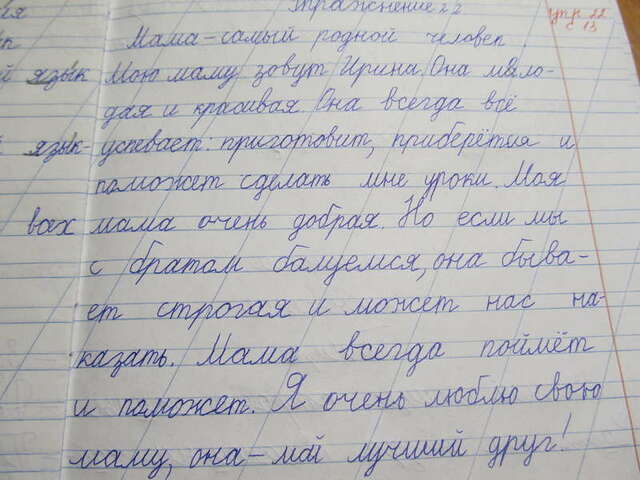 Упражнение 22
упр 22
с 13
Мама – самый родной человек.
язык Мою маму зовут Ирина. Она моло-
дая и красивая. Она всегда всё
язык- успевает: приготовит, приберётся и
поможет сделать мне уроки. Моя
всех мама очень добрая. Но если мы
с братом балуемся, она быва-
ет строгая и может нас на-
казать. Мама всегда поймёт
и поможет. Я очень люблю свою
маму, она – мой лучший друг!